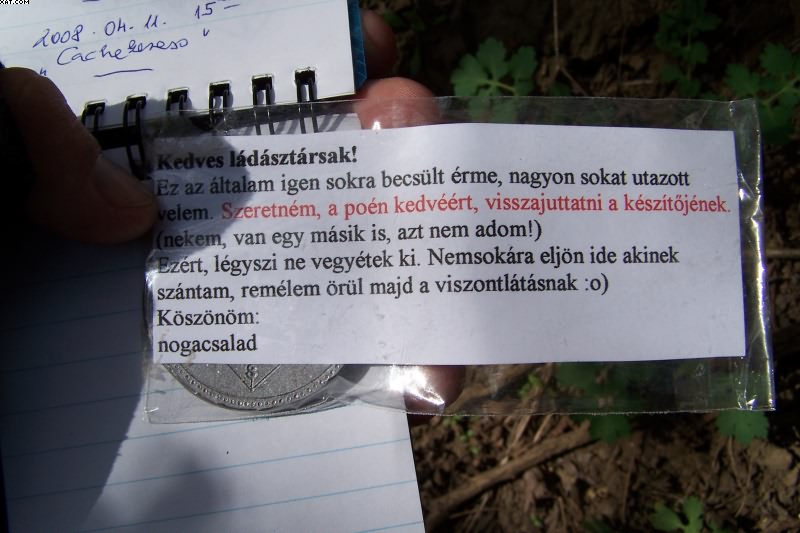 XAT.COM
2008.04.11. 15—
"Cachekereso"
Kedves ládásztársak!
Ez az általam igen sokra becsült érme, nagyon sokat utazott
velem. Szeretném, a poén kedvéért, visszajuttatni a készítőjének.
(nekem, van egy másik is, azt nem adom!)
Ezért, légyszi ne vegyétek ki. Nemsokára eljön ide akinek
szántam, remélem örül majd a viszontlátásnak :o)
Köszönöm:
nogacsalad